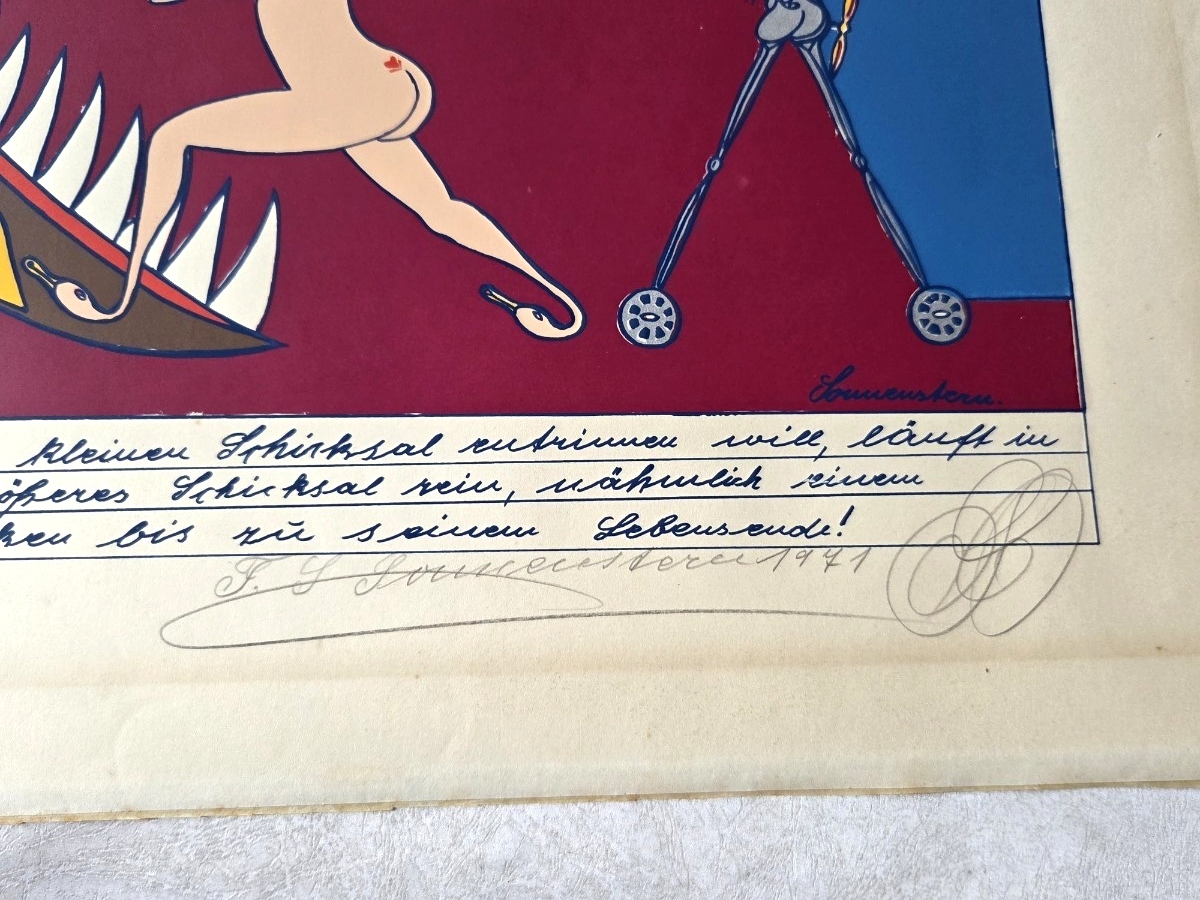 Sonnenstern.
kleinen Schicksal entrinnen will, läuft in
ößeres Schicksal rein, nähmlich einem
ken bis zu seinem Lebensende!
F. S Sonnenstern 1971